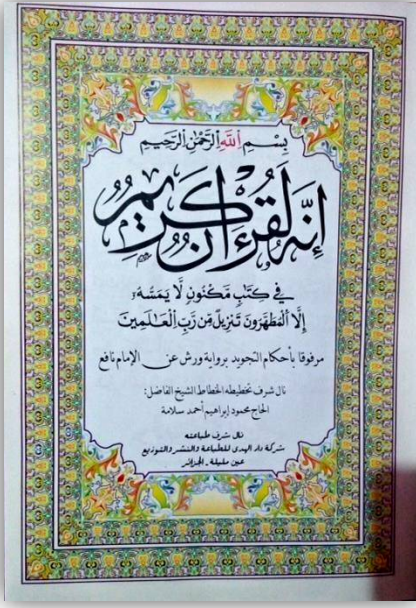 بِسْمِ اِللَّهِ اِلرَّحْمَٰنِ اِلرَّحِيمِ
إِنَّهُ لَقُرْءَانٌ كَرِيمٌ
فِي كِتَٰبٍ مَّكْنُونٍ لَّا يَمَسُّهُۥ
إِلَّا اَلْمُطَهَّرُونَ تَنزِيلٌ مِّن رَّبِّ اِلْعَٰلَمِينَ
مرفوقا بأحكام التجويد برواية ورش عن الإمام نافع
نال شرف تخطيطه الخطاط الشيخ الفاضل:
الحاج محمود إبراهيم أحمد سلامة
نال شرف طباعته
شركة دار الهدى للطباعة والنشر والتوزيع
عين مليلة - الجزائر